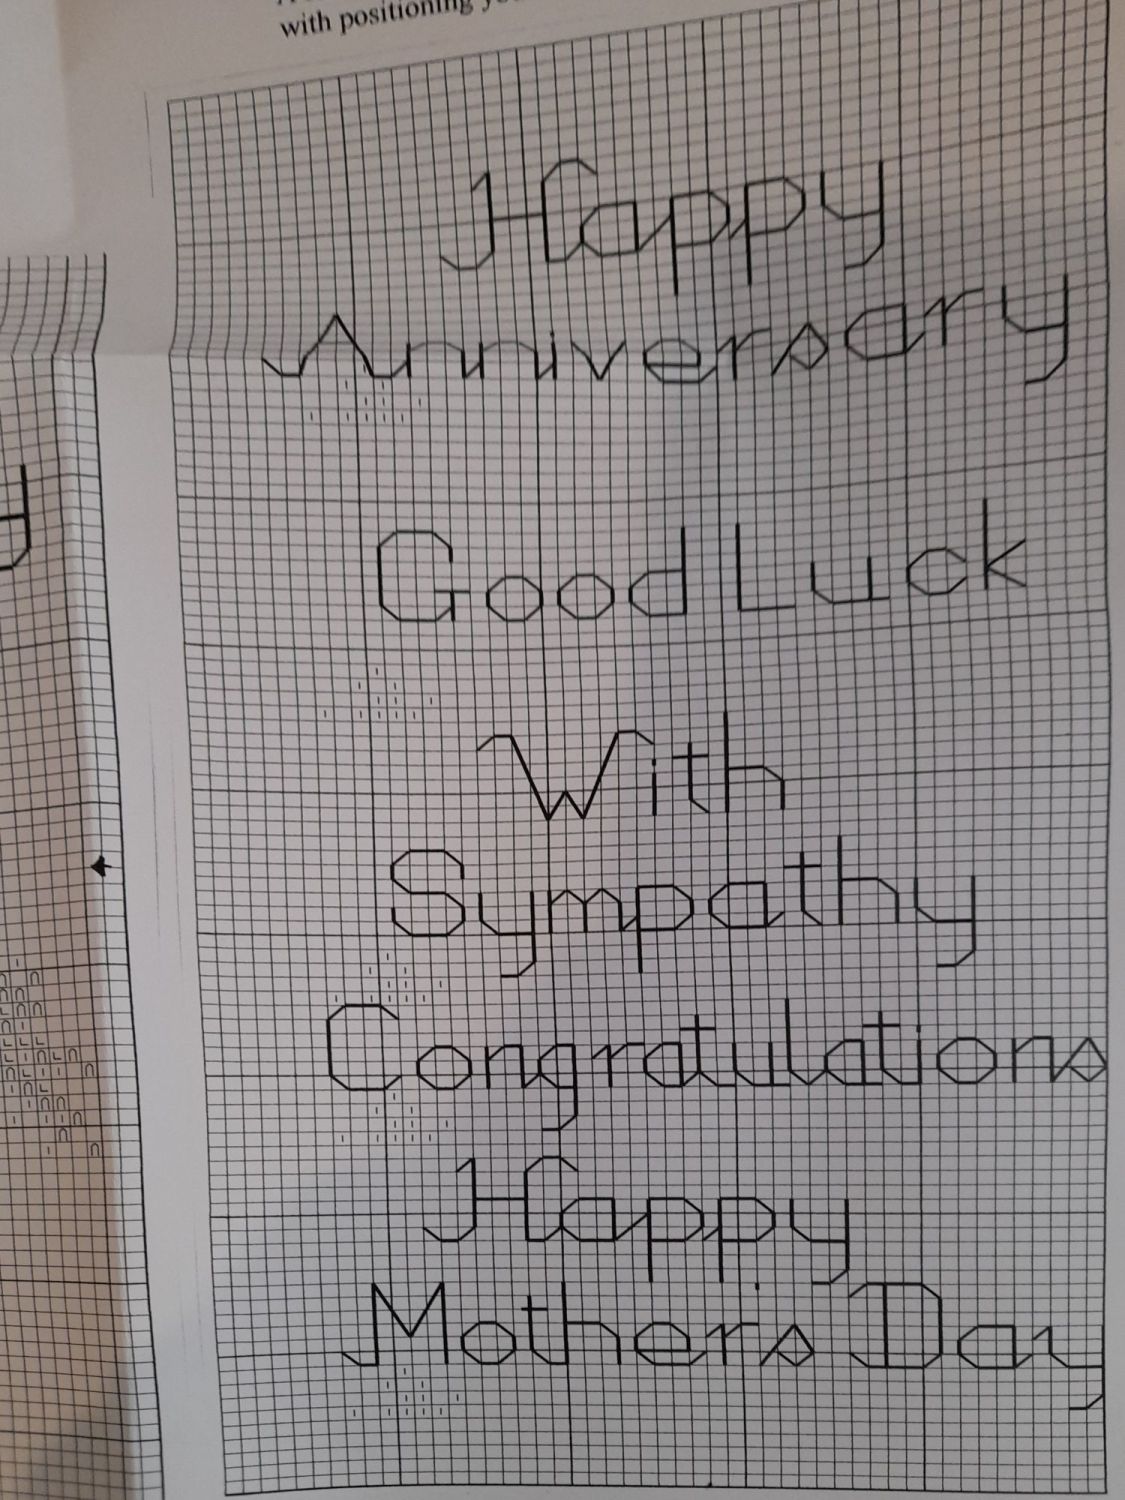 with positioning
Happy
Anniversary
Good Luck
With
Sympathy
Congratulations
Happy
Mother's Day